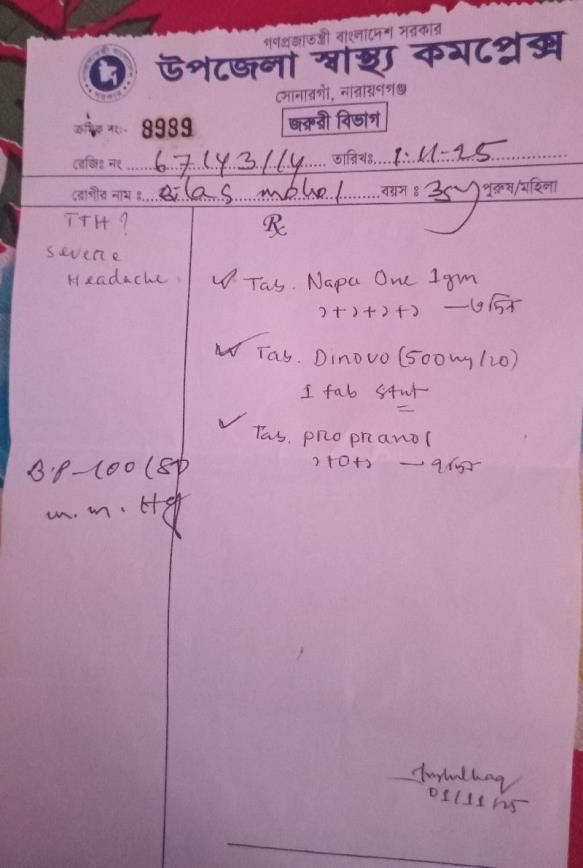 গণপ্রজাতন্ত্রী বাংলাদেশ সরকার
উপজেলা স্বাস্থ্য কমপ্লেক্স
সোনারগাঁ, নারায়ণগঞ্জ
জরুরী বিভাগ
ক্রমিক নং:- 8989
রেজিঃ নং 67143/14 তারিখঃ 1.11-25
রোগীর নাম : বয়স : পুরুষ/মহিলা
TTH ?
Severe
Headache
B.P-100/80
m.m.Hg
Rx
Tab. Napa One 1gm
১+১+১+১ —
Tab. Dinovo (500mg/20)
1 tab stat
Tab. propranol
১+০+১ —
01/11/25